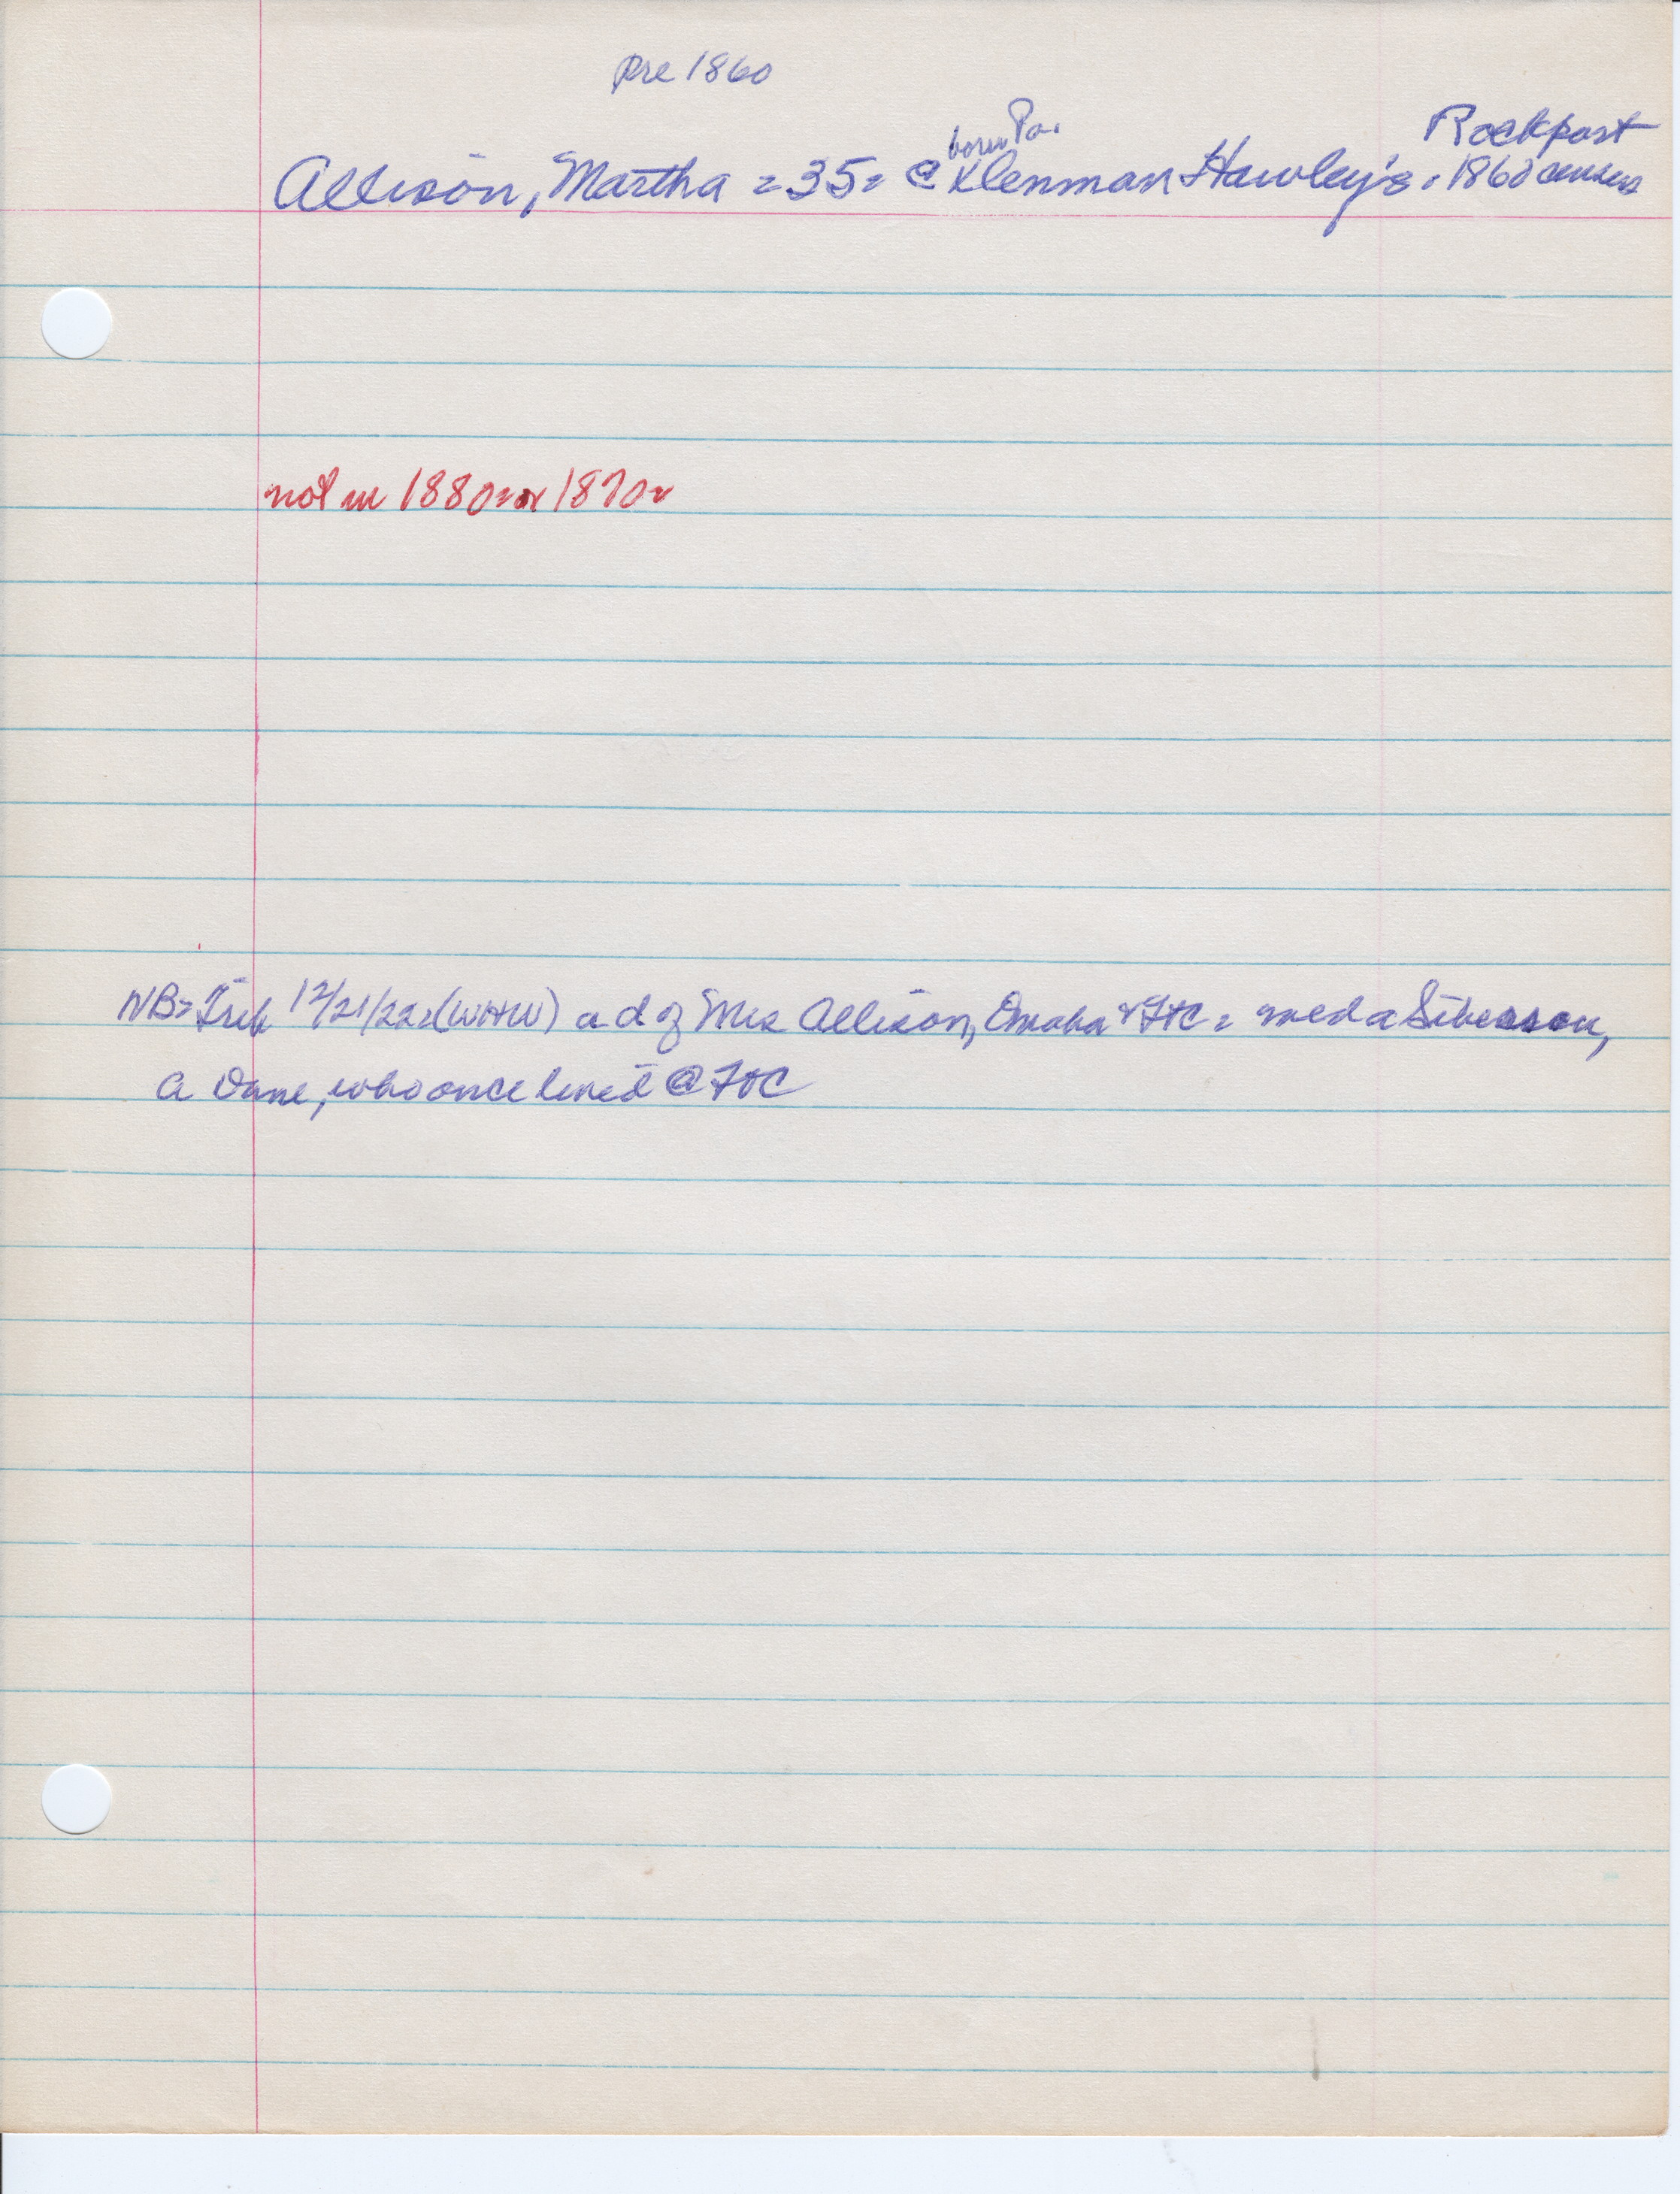 Pre 1860
born Pa. Rockport
Allison, Martha = 35 = @ Klenman Hawley's. 1860 census
not in 1880s or 1870s
NB= Trib 12/21/22=(WHW) a d of Mrs Allison, Omaha & FtC = med a
a Dane, who once lived @ FtC